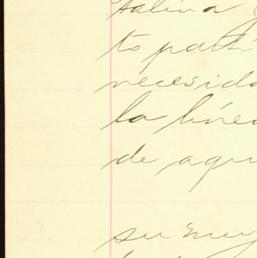 to parti
necesida
la línea
de aqu
su muy